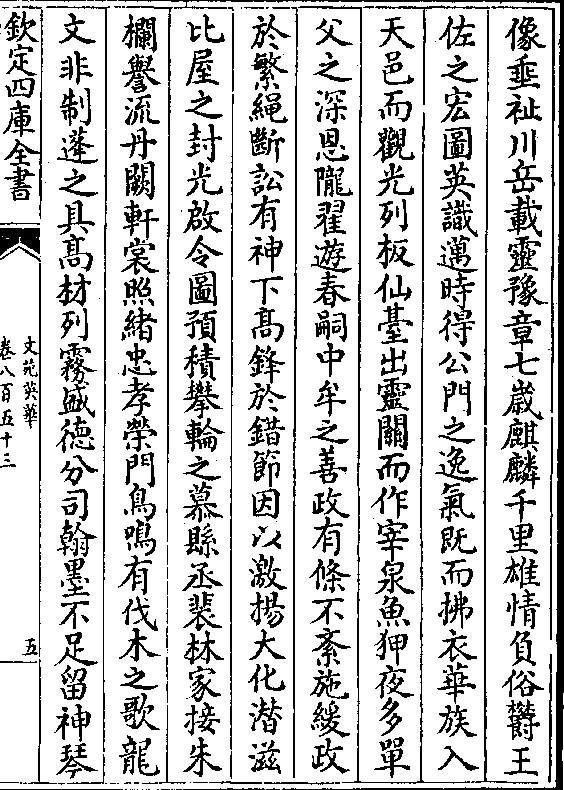 像垂祉川岳載靈豫章七歲麒麟千里雄情負俗鬱王
佐之宏圖英識邁時得公門之逸氣既而拂衣華族入
天邑而觀光列板仙臺出靈關而作宰泉魚狎夜多單
父之深恩隴翟遊春嗣中牟之善政有條不紊施緩政
於繁繩斷訟有神下髙鋒於錯節因以激揚大化潜滋
比屋之封光啟令圖預積攀輪之慕縣丞裴林家接朱
欄譽流丹闕軒裳照緒忠孝榮門鳥鳴有伐木之歌龍
文非制蓬之具髙材列霧盛徳分司翰墨不足留神琴
欽定四庫全書
文苑英華
卷八百五十三
五